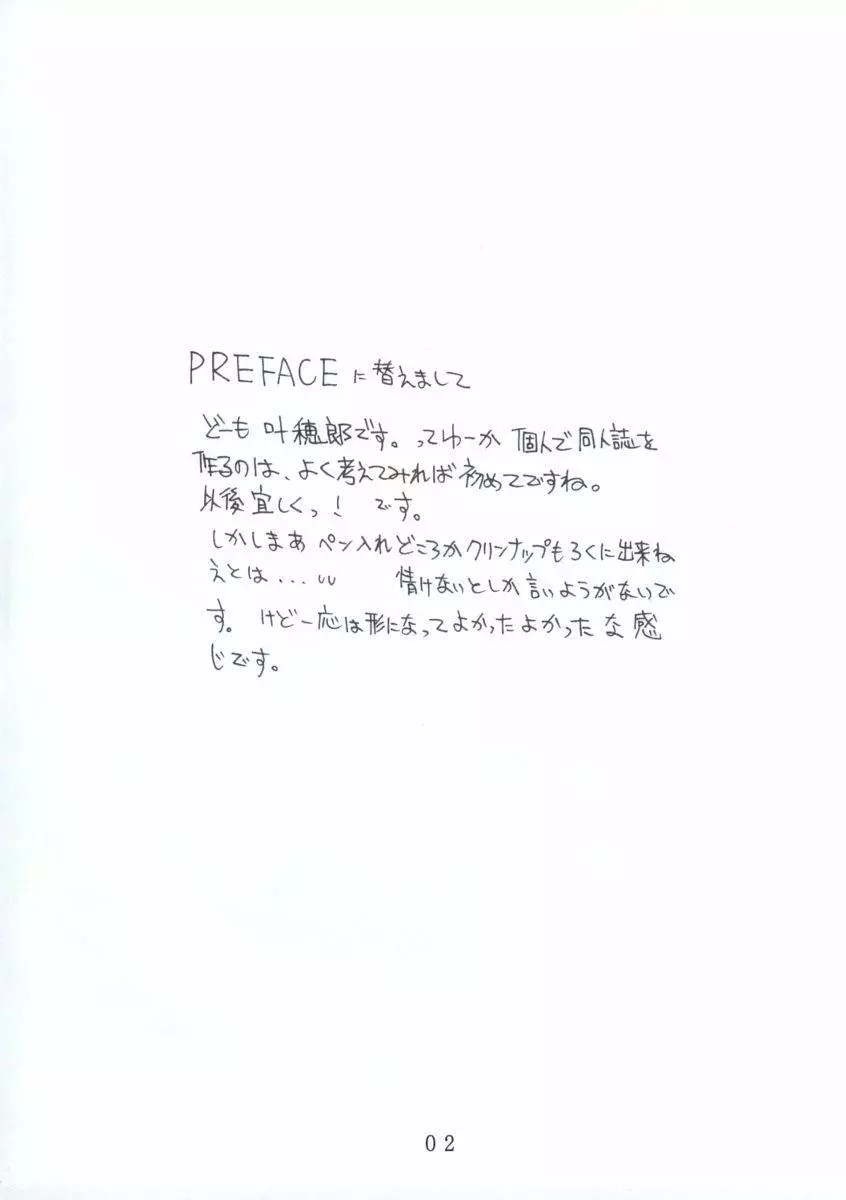 PREFACE に替えまして
どーも 叶穂郎です。ってゆーか 個人で同人誌を
作るのは、よく考えてみれば初めてですね。
以後宜しくっ! です。
しかしまあ ペン入れどころかクリンナップもろくに出来ね
えとは... 情けないとしか言いようがないで
す。けど一応は形になってよかったよかったな感
じです。
02